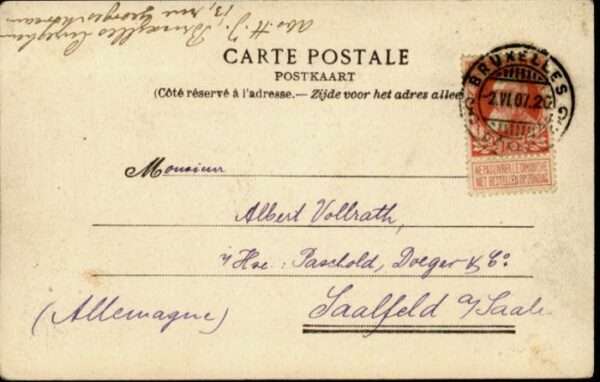 Abs. H. J.
Bruxelles
13, rue
CARTE POSTALE
POSTKAART
(Côté réservé à l'adresse.— Zijde voor het adres allee
BRUXELLES
2.VI.07.20
NE PAS LIVRER LE DIMANCHE
NIET BESTELLEN OP ZONDAG
Monsieur
Albert Vollrath,
Hse: Paschold, Doeger & Co.
Saalfeld a/Saale
(Allemagne)